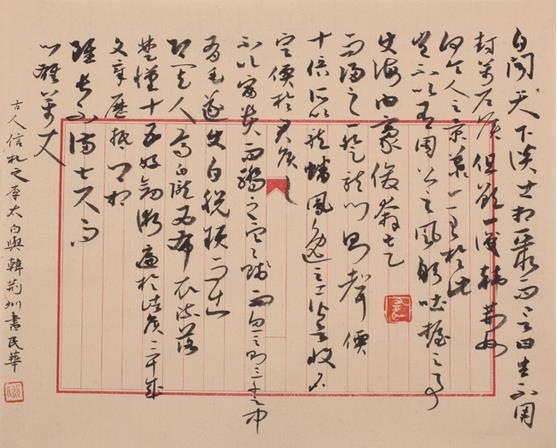 白聞天下談士相聚而言曰生不用
封萬戶侯但願一識韓荊州
何令人之景慕一至於此
豈不以有周公之風躬吐握之事
使海內豪俊奔走
而歸之一登龍門則聲價
十倍所以龍蟠鳳逸之士皆欲收名
定價於君侯
不以富貴而驕之寒賤而忽之則三千之中
有毛遂使白脫穎而出
即其人焉白隴西布衣流落
楚漢十五好劍術遍於諸侯三十成
文章歷抵卿相
雖長不滿七尺而
心雄萬丈
古人信札之李太白與韓荊州書民華